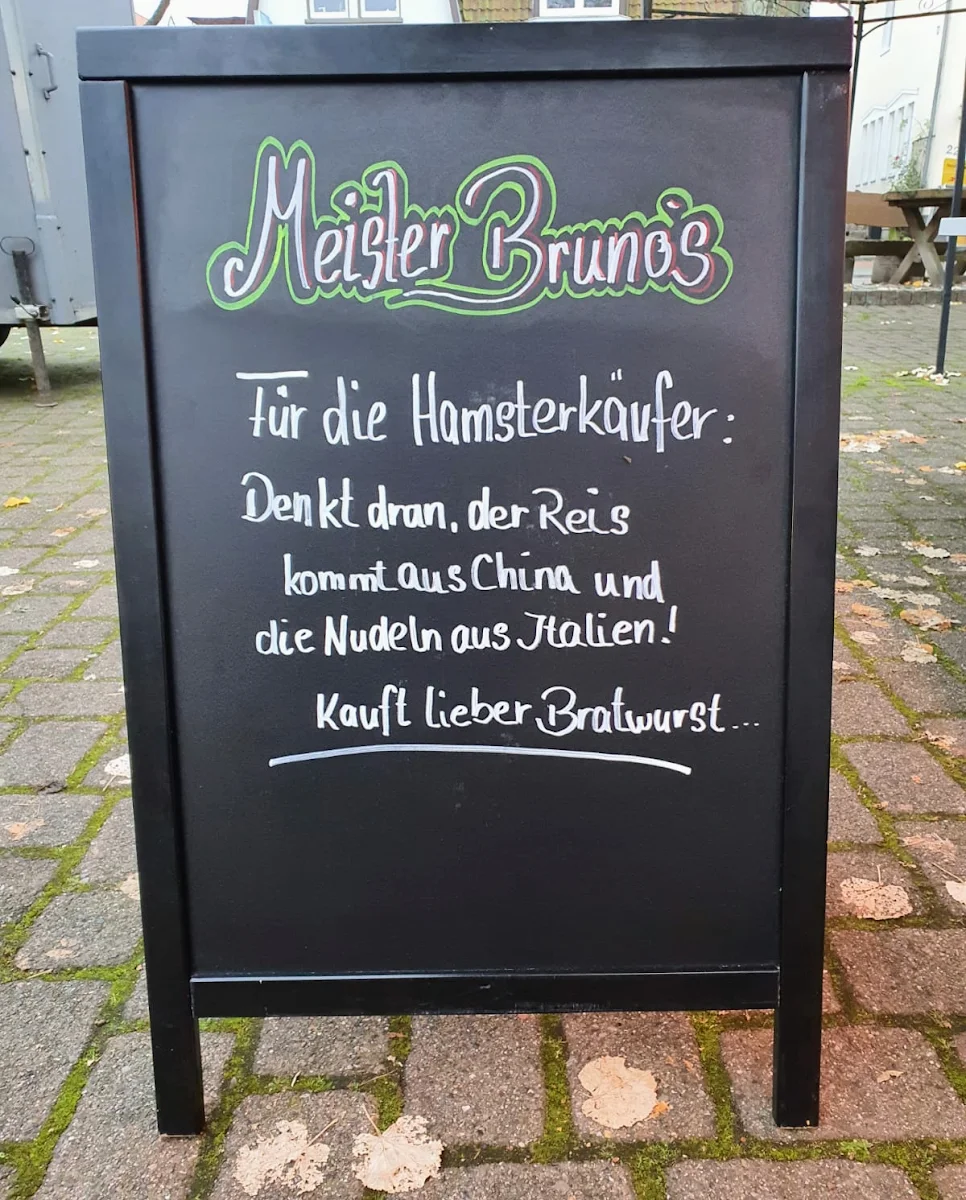 Meister Bruno's
Für die Hamsterkäufer:
Denkt dran, der Reis
kommt aus China und
die Nudeln aus Italien!
Kauft lieber Bratwurst...